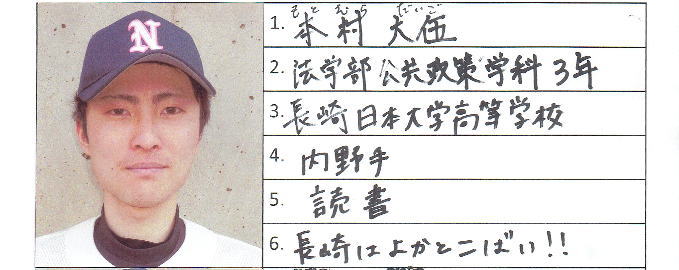 N
もとむら だいご
1. 本村 大伍
2. 法学部公共政策学科3年
3. 長崎日本大学高等学校
4. 内野手
5. 読書
6. 長崎はよかとこばい!!